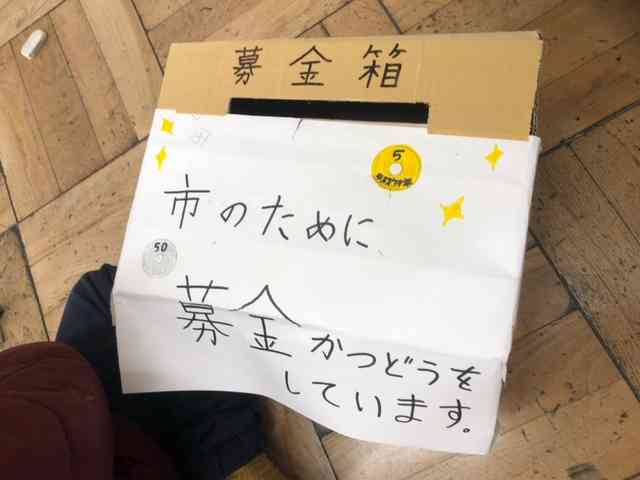 募金箱
5
市のために
50
募金かつどうを
しています。